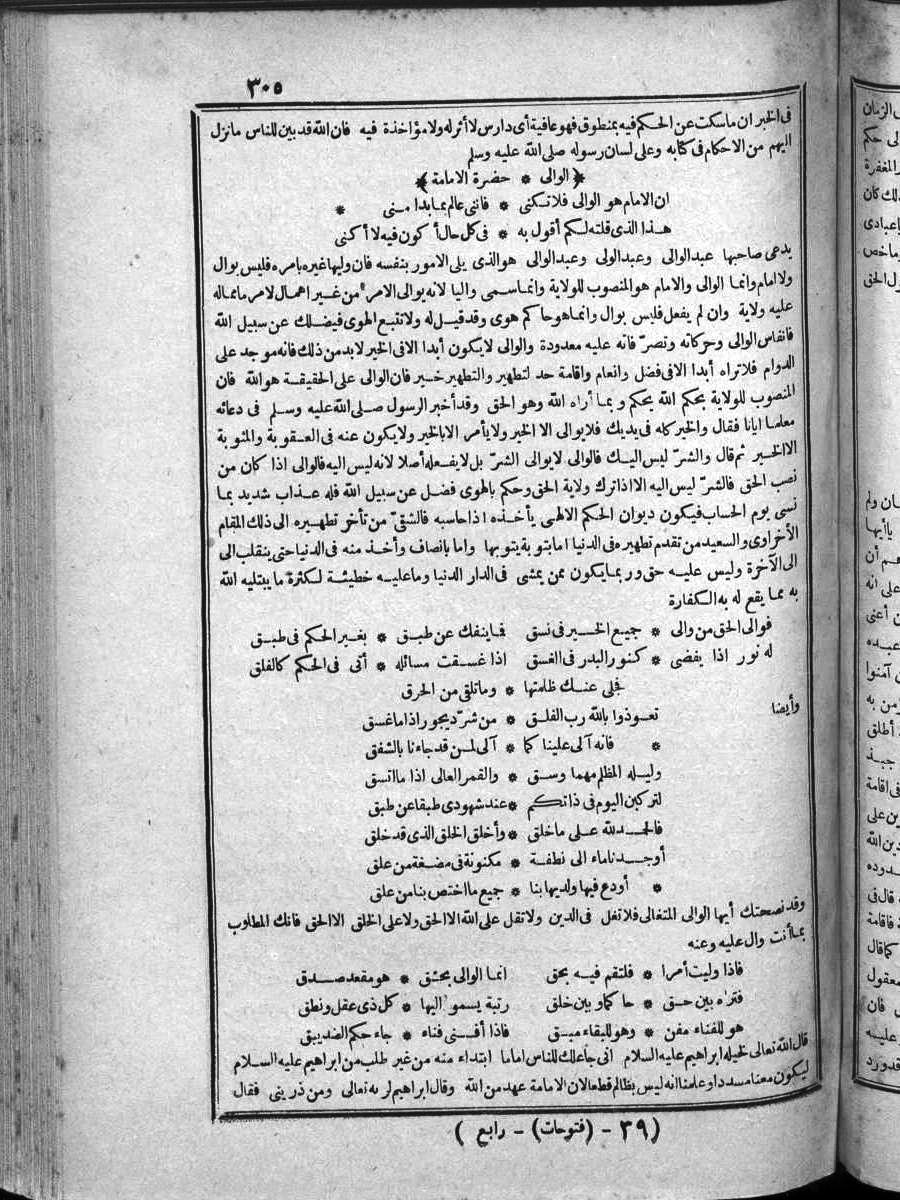 ٣٠٥
فى الخبر ان ماسكت عن الحكم فيه بمنطوق فهو عافية أى دارس لا أثر له ولا مؤاخذة فيه فان الله قد بين للناس مانزل
اليهم من الاحكام فى كتابه وعلى لسان رسوله صلى الله عليه وسلم
﴿ الوالى * حضرة الامامة ﴾
ان الامام هو الوالى فلا تكنى * فاننى عالم بما بدا منى *
هذا الذى قلته لكم أقول به * فى كل حال أكون فيه لا أكنى
يدعى صاحبها عبد الوالى وعبد الولى وعبد الوالى هو الذى يلى الامور بنفسه فان وليها غيره بامره فليس بوال
ولا امام وانما الوالى والامام هو المنصوب للولاية وانما سمى واليا لانه يوالى الامر من غير اهمال لامر ما مما له
عليه ولاية وان لم يفعل فليس بوال وانما هو حاكم هوى وقد قيل له ولا تتبع الهوى فيضلك عن سبيل الله
فانفاس الوالى وحركاته وتصرّفاته عليه معدودة والوالى لا يكون أبدا الا فى الخير لابد من ذلك فانه موجد على
الدوام فلا تراه أبدا الا فى فضل وانعام واقامة حد لتطهير والتطهير خير فان الوالى على الحقيقة هو الله فان
المنصوب للولاية بحكم الله يحكم وبما أراه الله وهو الحق وقد أخبر الرسول صلى الله عليه وسلم فى دعائه
معلما ايانا فقال والخير كله فى يديك فلا يوالى الا الخير ولا يأمر الا بالخير ولا يكون عنه فى العقوبة والمثوبة
الا الخير ثم قال والشرّ ليس اليك فالوالى لا يوالى الشرّ بل لا يفعله أصلا لانه ليس اليه فالوالى اذا كان من
نصب الحق فالشرّ ليس اليه الا اذا ترك ولاية الحق وحكم بالهوى فضل عن سبيل الله فله عذاب شديد بما
نسى يوم الحساب فيكون ديوان الحكم الالهى يأخذه اذا حاسبه فالشقىّ من تأخر تطهيره الى ذلك المقام
الأخراوى والسعيد من تقدم تطهيره فى الدنيا اما بتوبة يتوبها واما بانصاف وأخذ منه فى الدنيا حتى ينقلب الى
الى الآخرة وليس عليه حق وربما يكون ممن يمشى فى الدار الدنيا وما عليه خطيئة لكثرة ما يبتليه الله
به مما يقع له به الكفارة
فوالى الحق من والى * جميع الخير فى نسق فما ينفك عن طبق * بغير الحكم فى طبق
له نور اذا يفضى * كنور البدر فى الغسق اذا غسقت مسائله * أتى فى الحكم كالفلق
فجلى عنك ظلمتها * وما تلقى من الحرق
وأيضا
تعوذوا بالله رب الفلق * من شرّ ديجور اذا ما غسق
* فانه آلى علينا كما * آلى لمن قد جاءنا بالشفق
وليله المظلم مهما وسق * والقمر العالى اذا ما اتسق
لتركبن اليوم فى ذاتكم * عند شهودى طبقا عن طبق
فالحمد لله على ما خلق * وأخلق الخلق الذى قد خلق
أوجدنا ماء الى نطفة * مكنونة فى مضغة من علق
* أودع فيها ولديها بنا * جميع ما اختص بنا من علق
وقد نصحتك أيها الوالى المتغالى فلا تغل فى الدين ولا تقل على الله الا الحق ولا على الخلق الا الحق فانك المطلوب
بما أنت وال عليه وعنه
فاذا وليت أمرا * فلتقم فيه بحق انما الوالى بحق * هو مقعد صدق
فتراه بين حق * حاكما وبين خلق رتبة يسمو اليها * كل ذى عقل ونطق
هو للفناء مفن * وهو للبقاء مبق فاذا أفنى فناء * جاء حكم الضد يبق
قال الله تعالى لخليله ابراهيم عليه السلام انى جاعلك للناس اماما ابتداء منه من غير طلب من ابراهيم عليه السلام
ليكون معنا مسددا وعلمنا انه ليس بظالم قطعا لان الامامة عهد من الله وقال ابراهيم لربه تعالى ومن ذريتى فقال
( ٣٩ - (فتوحات) - رابع )